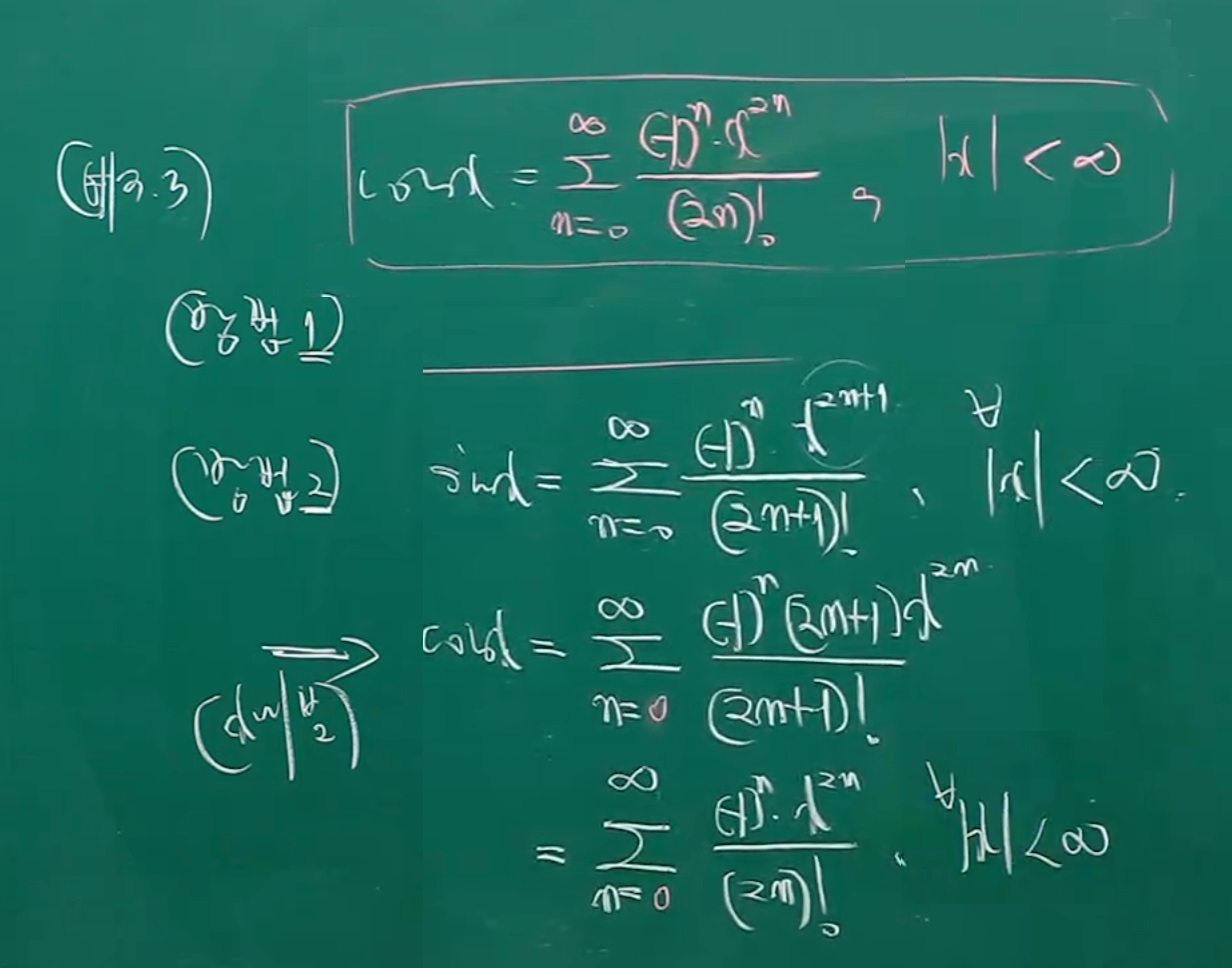 (#2.3) cosx = ∑_{n=0}^{∞} \frac{(-1)^n · x^{2n}}{(2n)!} , |x| < ∞
(방법 1)
(방법 2) sinx = ∑_{n=0}^{∞} \frac{(-1)^n · x^{2n+1}}{(2n+1)!} , ∀|x| < ∞.
⇒ cosx = ∑_{n=0}^{∞} \frac{(-1)^n (2n+1) x^{2n}}{(2n+1)!}
= ∑_{n=0}^{∞} \frac{(-1)^n · x^{2n}}{(2n)!} , ∀|x| < ∞